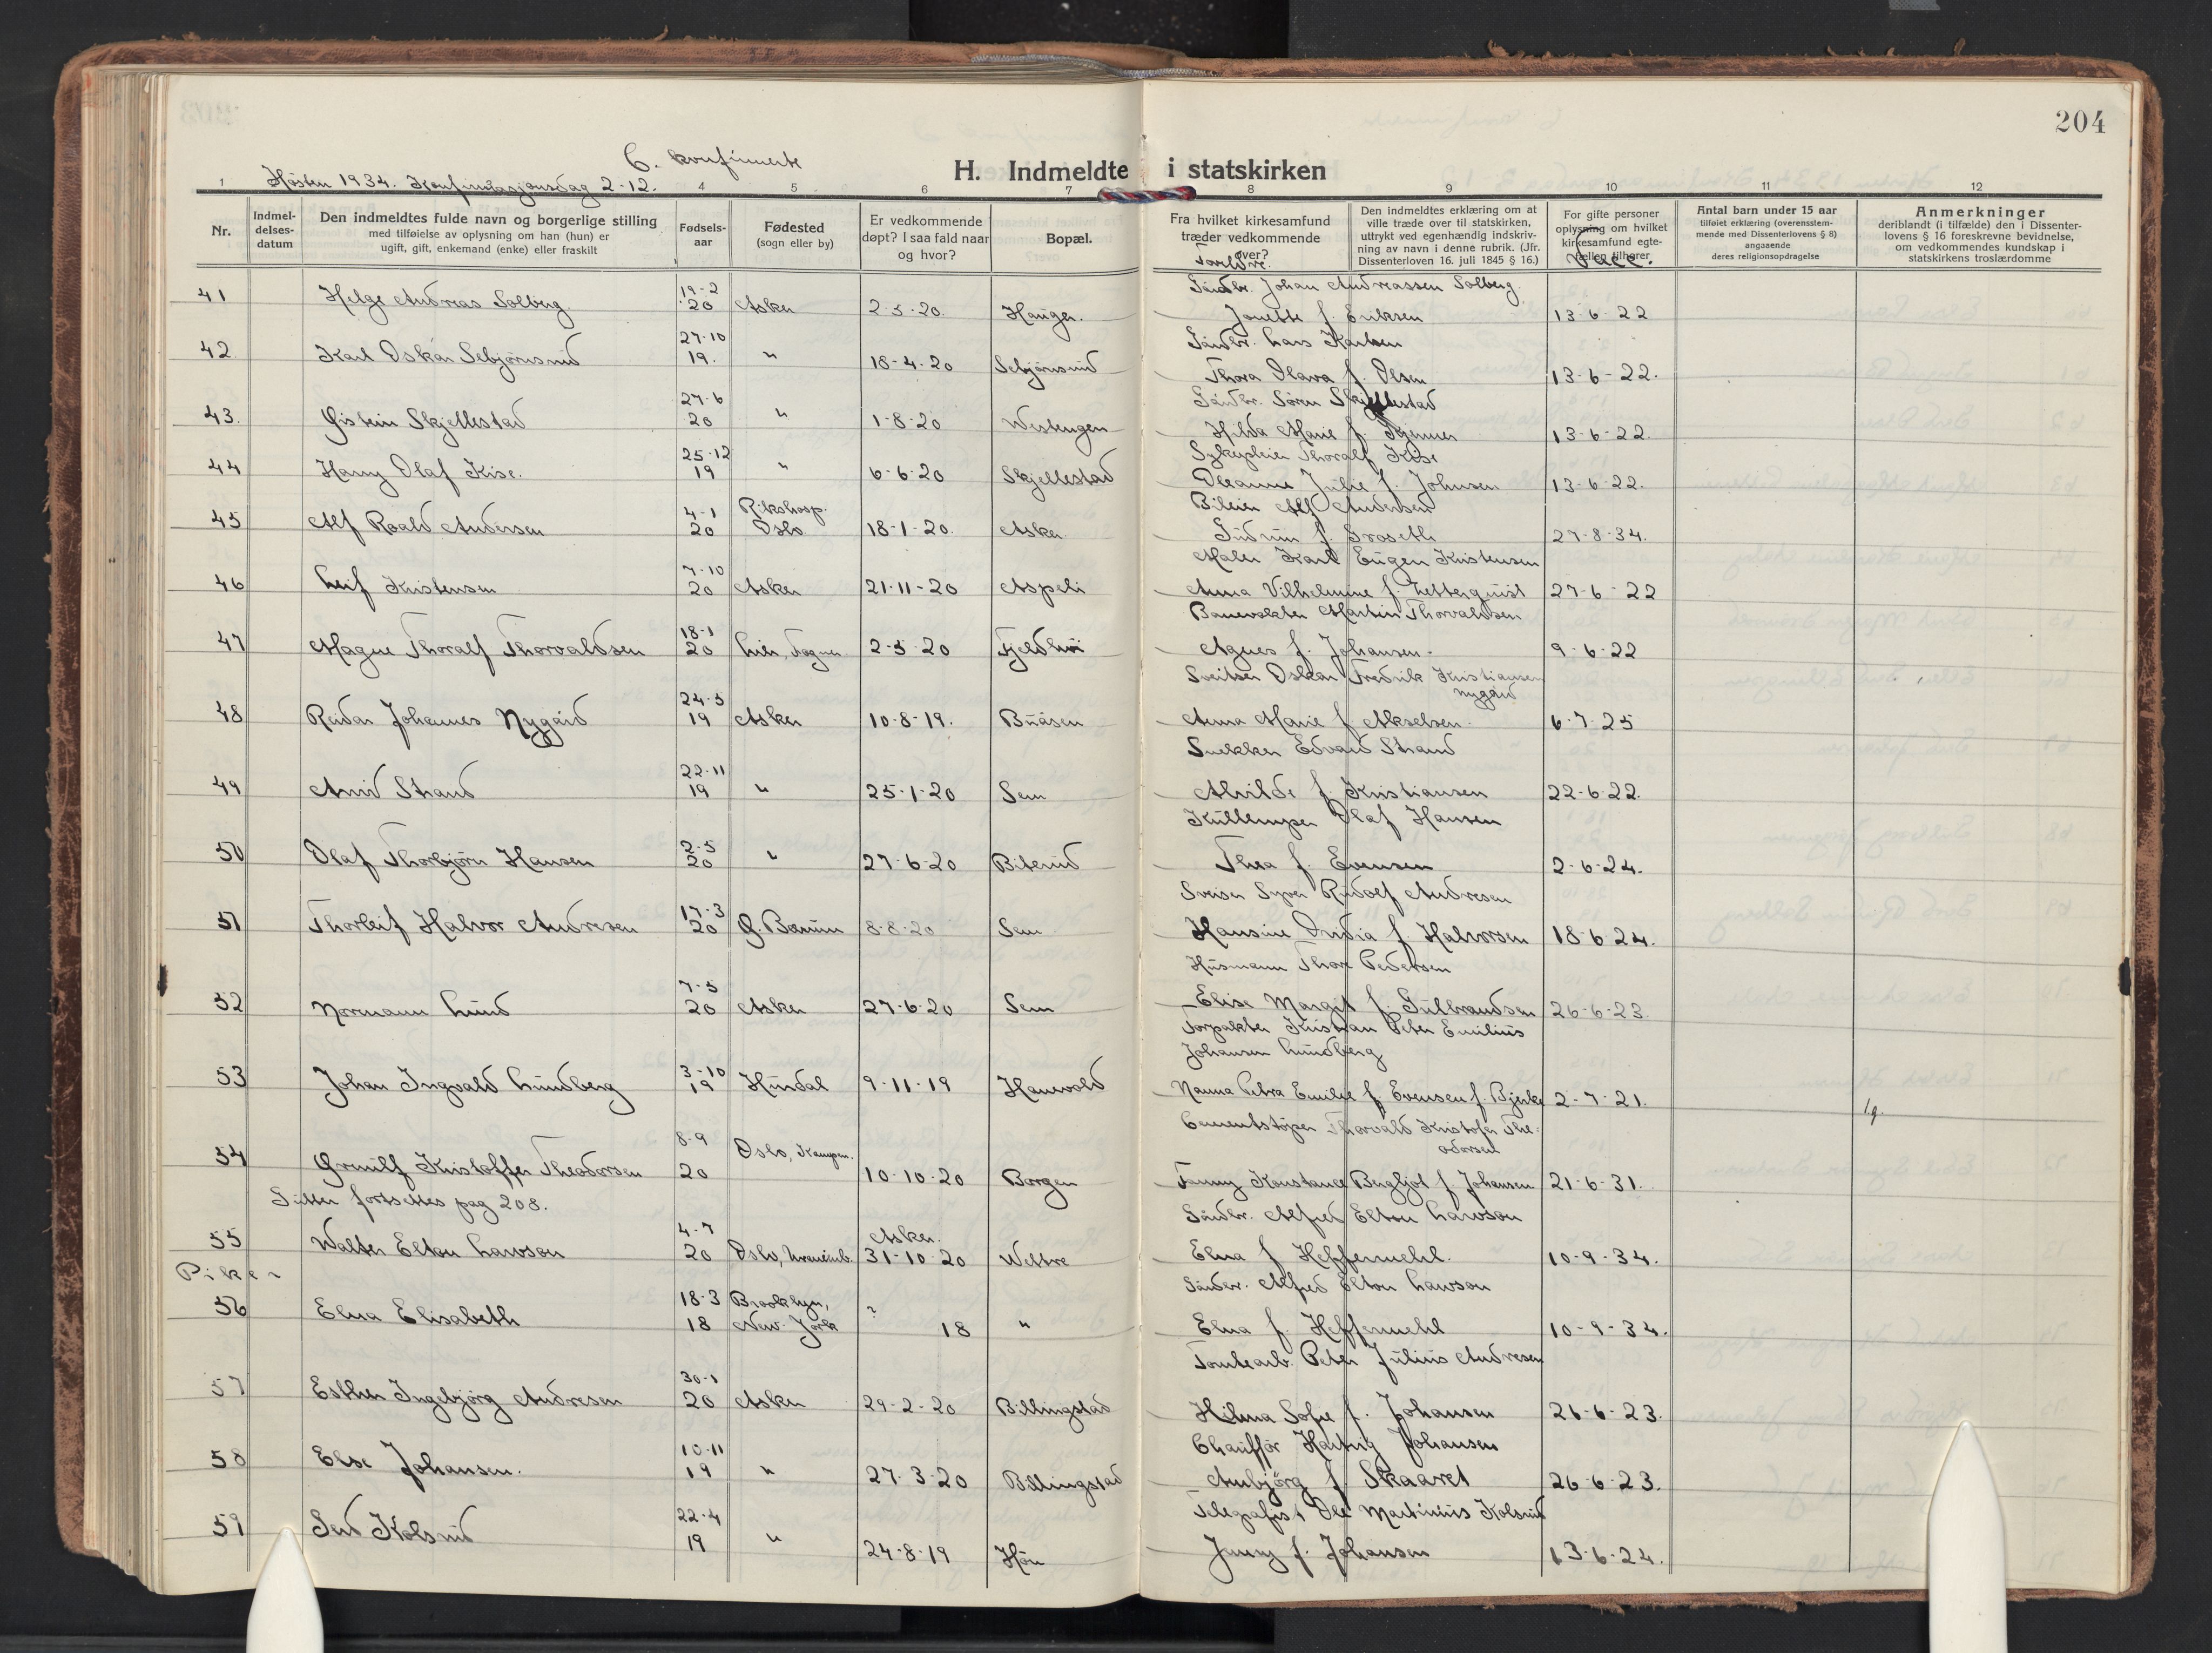 204
C. konfirmerte
H. Indmeldte i statskirken
Høsten 1934. Konfirmasjonsdag 2-12.
1 4 5 6 7 8 9 10 11 12
Nr.
Indmel-
delses-
datum
Den indmeldtes fulde navn og borgerlige stilling
med tilføielse av oplysning om han (hun) er
ugift, gift, enkemand (enke) eller fraskilt
Fødsels-
aar
Fødested
(sogn eller by)
Er vedkommende
døpt? I saa fald naar
og hvor?
Bopæl.
Fra hvilket kirkesamfund
træder vedkommende
over?
Foreldre.
Den indmeldtes erklæring om at
ville træde over til statskirken,
uttrykt ved egenhændig indskriv-
ning av navn i denne rubrik. (Jfr.
Dissenterloven 16. juli 1845 § 16.)
For gifte personer
oplysning om hvilket
kirkesamfund egte-
fællen tilhører
Vacc.
Antal barn under 15 aar
tilføiet erklæring (overensstem-
mende med Dissenterlovens § 8)
angaaende
deres religionsopdragelse
Anmerkninger
deriblandt (i tilfælde) den i Dissenter-
lovens § 16 foreskrevne bevidnelse,
om vedkommendes kundskap i
statskirkens troslærdomme
19-2 Gårdbr. Johan Andreassen Solberg
41 Helge Andreas Solberg 20 Asker 2-5-20. Hauger. Janette f. Eriksen 13-6-22
27-10 Gårdbr. Lars Karlsen
42 Karl Oskar Sebjørnsrud 19. " 18-4-20 Sebjørnsrud Thora Olava f. Olsen 13-6-22.
27-6 Gårdbr. Søren Skjellestad
43. Øistein Skjellestad 20 " 1-8-20 Vestengen Hilda Marie f. 13-6-22.
25-12 Sykepleier Thoralf Kise
44 Harry Olaf Kise. 19 " 6-6-20 Skjellestad Oleanna Julie f. Johnsen 13-6-22.
4-1 Rikshosp. Bileier Alf Andersen
45 Alf Roald Andersen 20 Oslo 18-1-20. Asker Gudrun f. Groseth 27-8-34.
7-10 Maler Karl Eugen Kristensen
46 Leif Kristensen 20 Asker 21-11-20 Aspeli Anna Vilhelmine f. Zetterquist 27-6-22
18-1 Banevokter Martin Thorvaldsen
47 Magne Thoralf Thorvaldsen 20 Lier, 2-5-20 Fjeldhøi Agnes f. Johansen. 9-6-22
24-5 Sveitser Oskar Fredrik Kristiansen
Nygård
48 Reidar Johannes Nygård 19 Asker 10-8-19. Buåsen Anna Marie f. Akselsen. 6-7-25
22-11 Snekker Edvard Strand
49 Arvid Strand 19 " 25-1-20 Sem Alvilde f. Kristiansen 22-6-22.
2-5 Kullemper Olaf Hansen
50 Olaf Thorbjørn Hansen 20 " 27-6-20 Biterud Thea f. Evensen 2-6-24.
17-3 Sveiser Syver Rudolf Andresen
51 Thorleif Halvor Andresen 20 Ø. Bærum 8-8-20 Sem Hansine f. Halvorsen 18-6-24.
7-5 Husmann Thore Pedersen
52 Normann Lund 20 Asker 27-6-20 Sem Elise Margit f. Gulbrandsen 26-6-23.
Forpakter Kristian Peter Emilius
3-10 Johansen Lundberg
53 Johan Ingvald Lundberg 19 Hurdal 9-11-19 Hanevold Nanna Petra Emilie f. Evensen f. Bjerke 2-7-21. 1g.
8-9 Oslo, Kampen. Cementstøper Thorvald Kristofer The-
odorsen
54 Ørnulf Kristoffer Theodorsen 20 10-10-20 Borgen Fanny Konstance Bergljot f. Johansen 21-6-31.
Gutter fortsettes pag 208.
4-7 Asker. Gårdbr. Alfred Elton Lawson
55 Walter Elton Lawson 20 Oslo, Uranienb. 31-10-20 Vettre Elna f. Heffermehl. 10-9-34.
Piker
18-3 Brooklyn, ? Gårdbr. Alfred Elton Lawson
56 Elna Elisabeth 18 New-York 18 " Elna f. Heffermehl 10-9-34.
30-1 Tomtearb. Peter Julius Andresen
57 Esther Ingebjørg Andresen 20 Asker 29-2-20 Billingstad Hilma Sofie f. Johansen 26-6-23.
10-11 Chauffør Hartvig Johansen
58 Else Johansen. 19 " 27-3-20 Billingstad Anbjørg f. Skaaret 26-6-23.
22-4 Telegrafist Ole Martinius Kolsrud
59 Gerd Kolsrud 19 " 24-8-19 Høn Jenny f. Johansen 13-6-24.